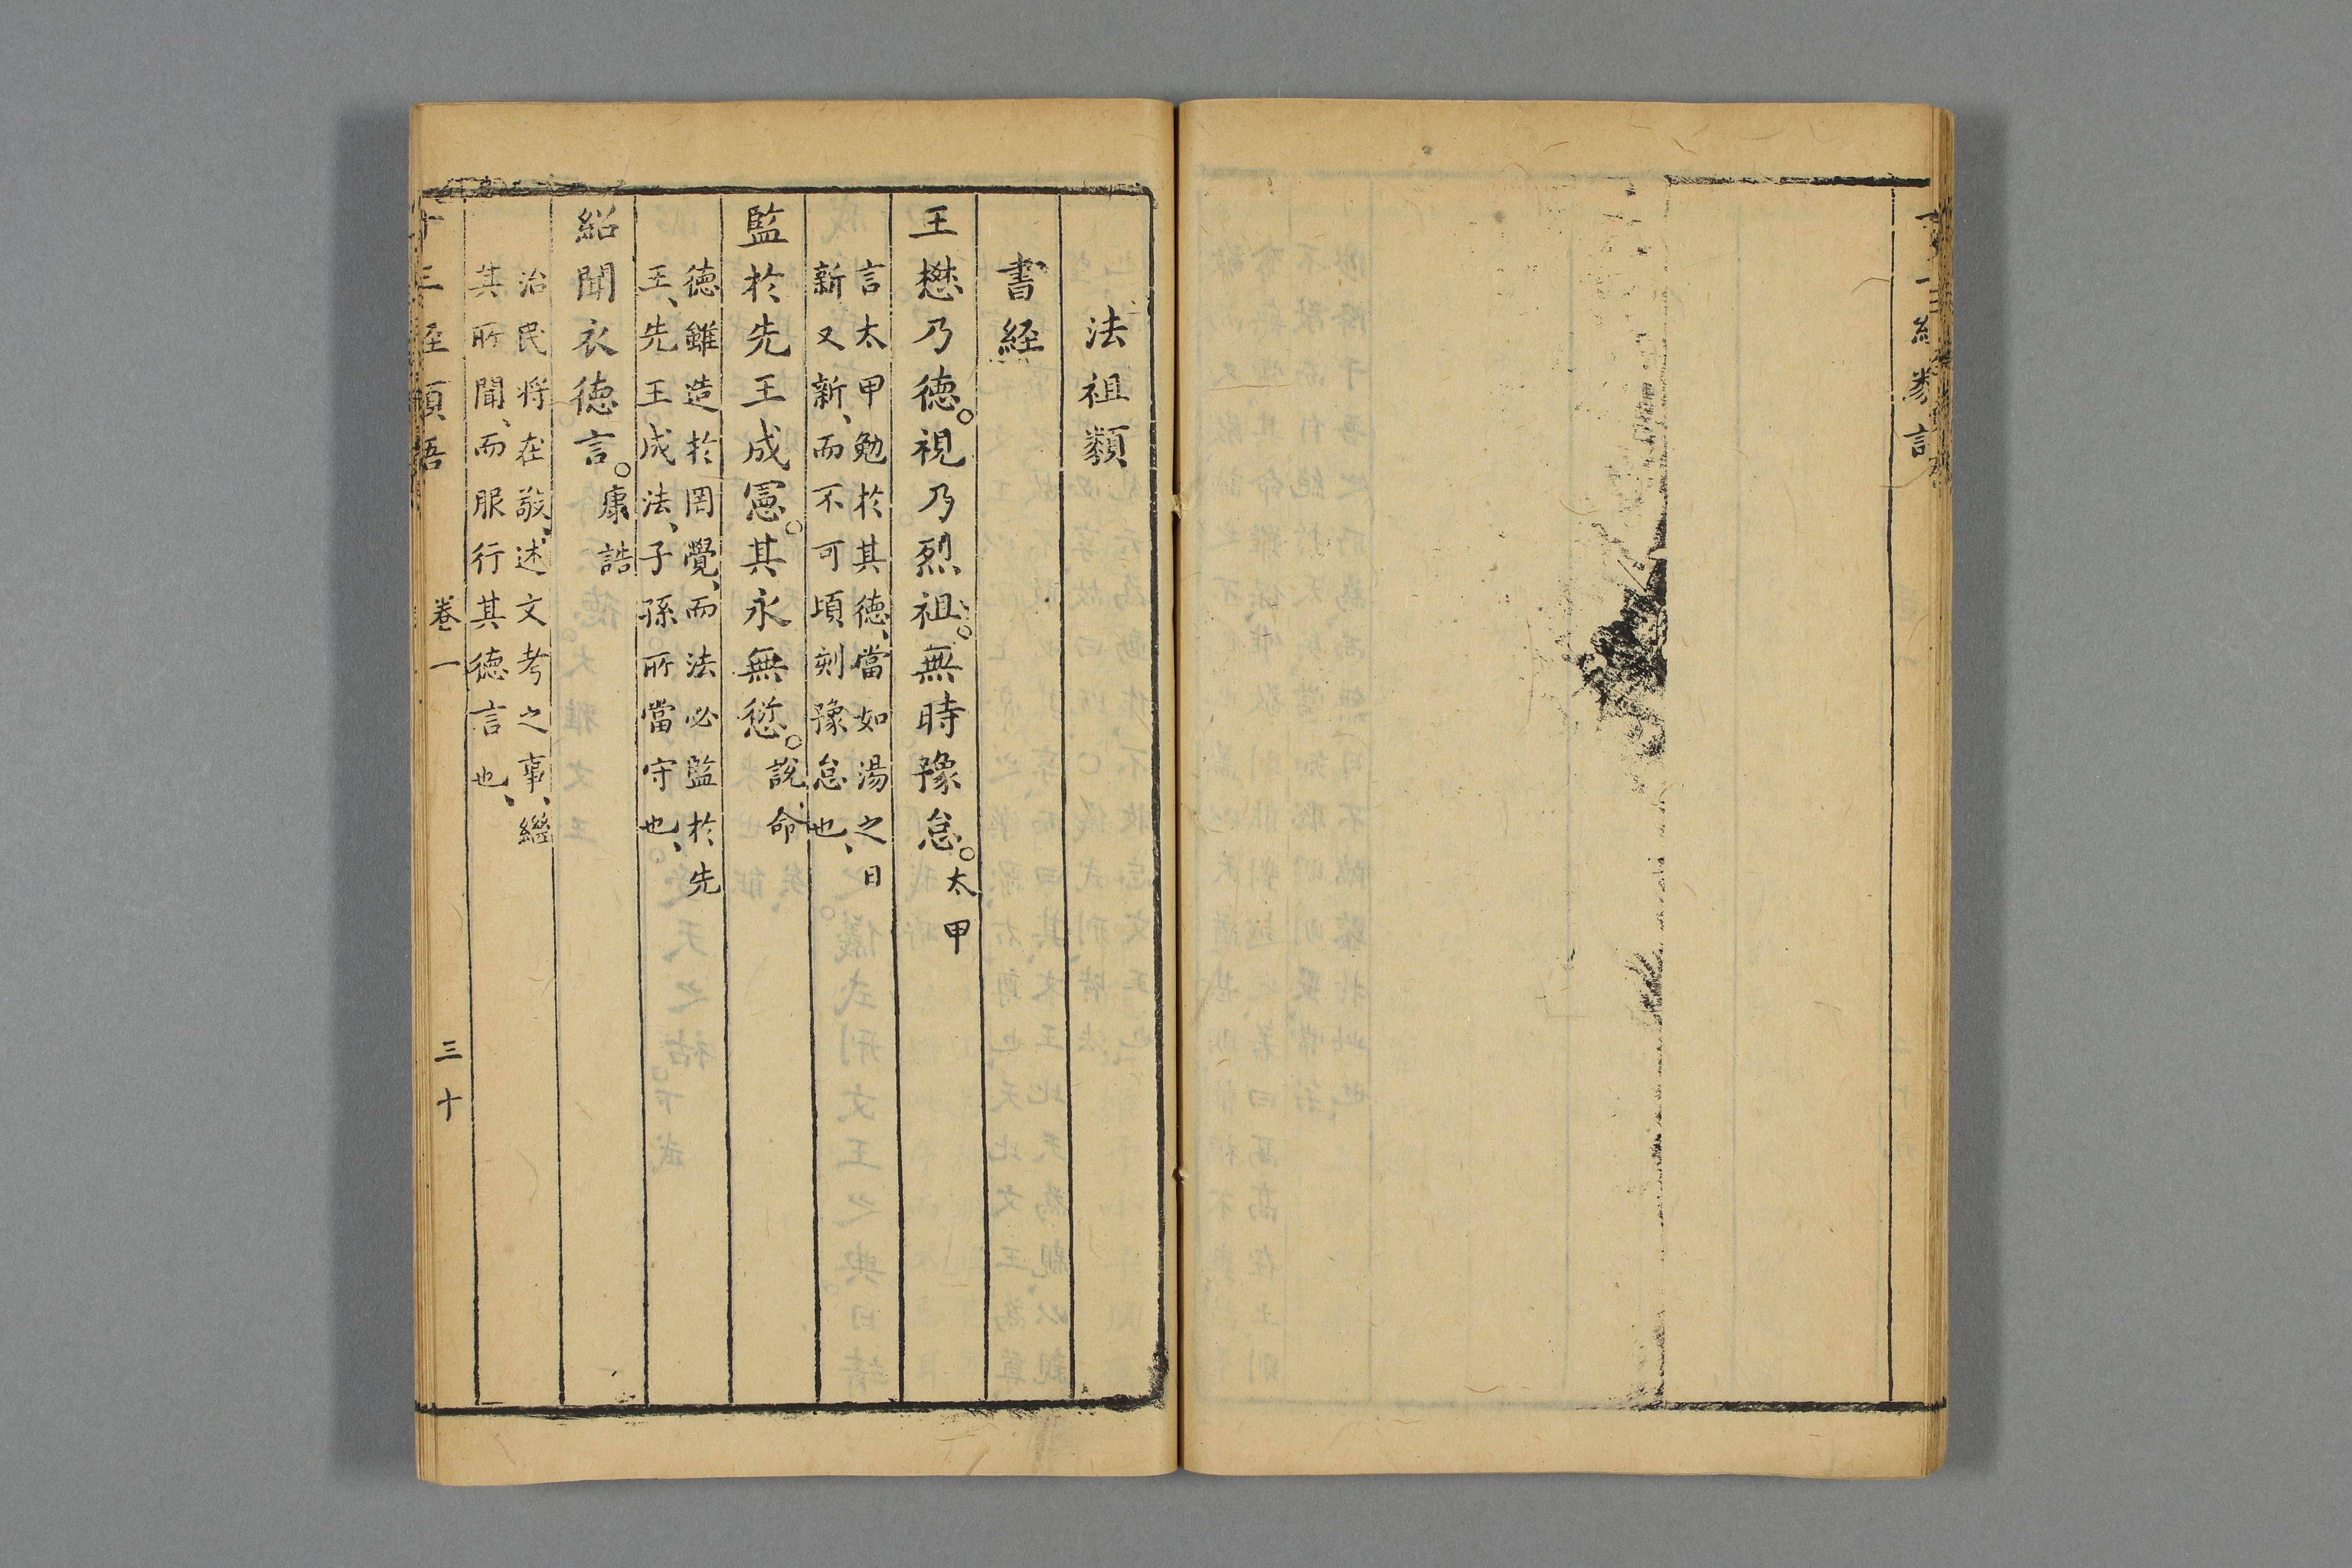 法祖類
書経
王懋乃德。視乃烈祖。無時豫怠。太甲
言太甲勉於其德、當如湯之日
新又新、而不可頃刻豫怠也、
監於先王成憲。其永無愆。說命
德雖造於罔覺、而法必監於先
王、先王成法、子孫所當守也、
紹聞衣德言。康誥
治民將在敬、述文考之事、繼
其所聞、而服行其德言也、
卷一
三十